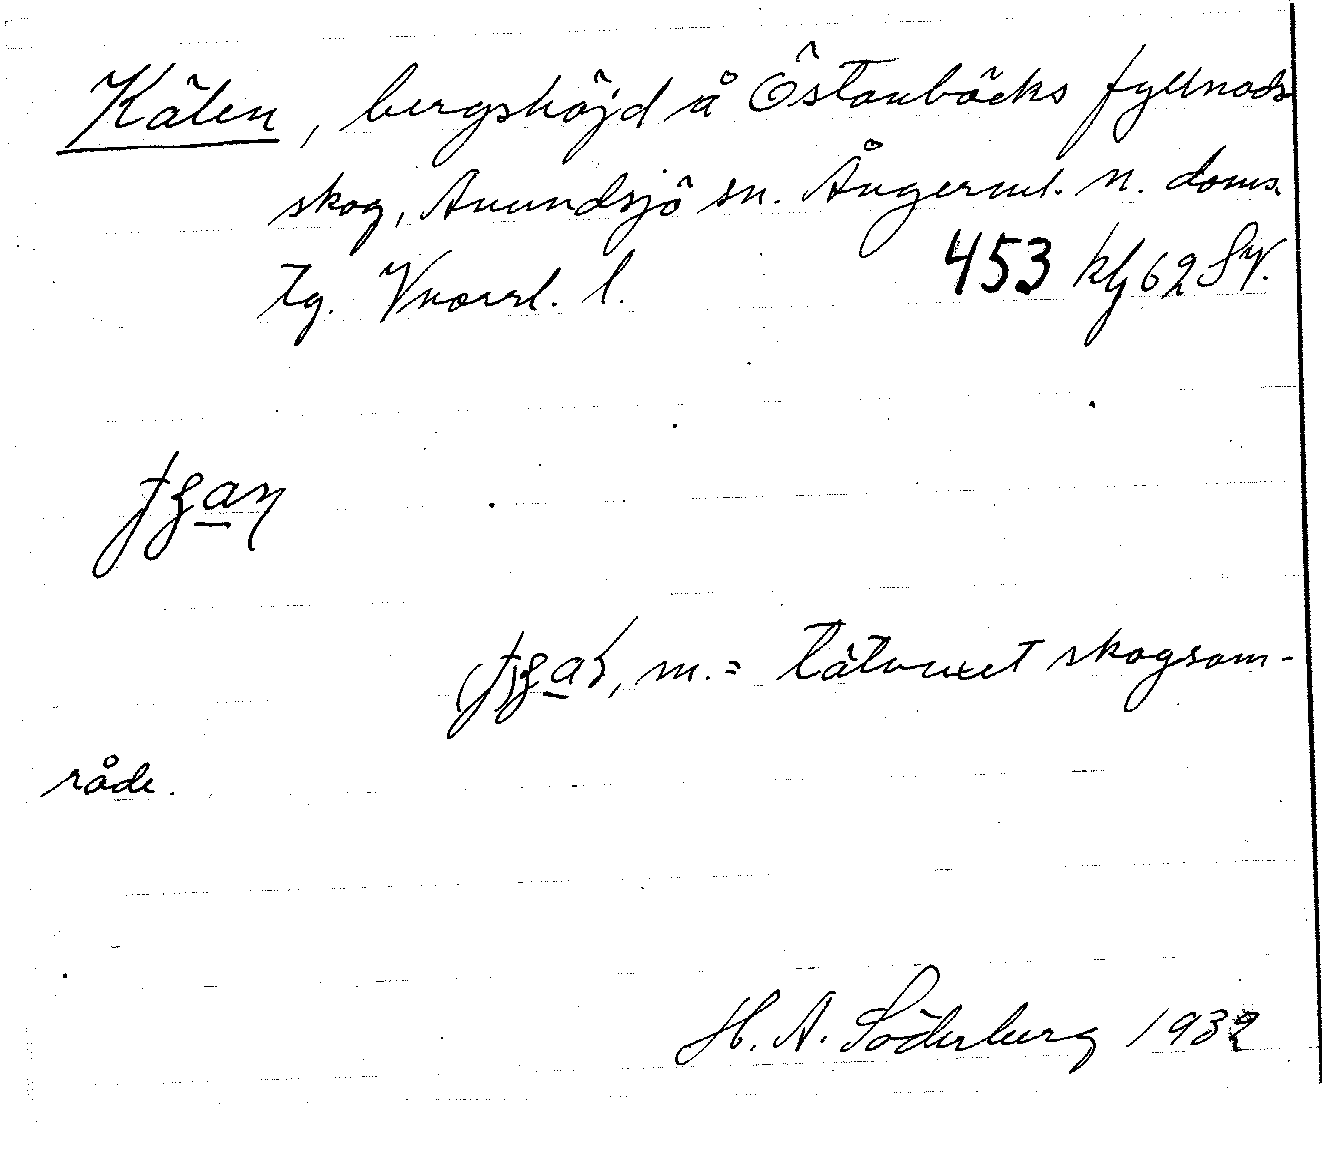 Kälen, bergshöjd å Östanbäcks fyllnads
skog, Anundsjö sn. Ångerml. n. doms.
tg. Vnorrl. l. 453 klj 62 SV.
m. = tätvuxet skogsom-
råde.
H. A. Söderberg 1932